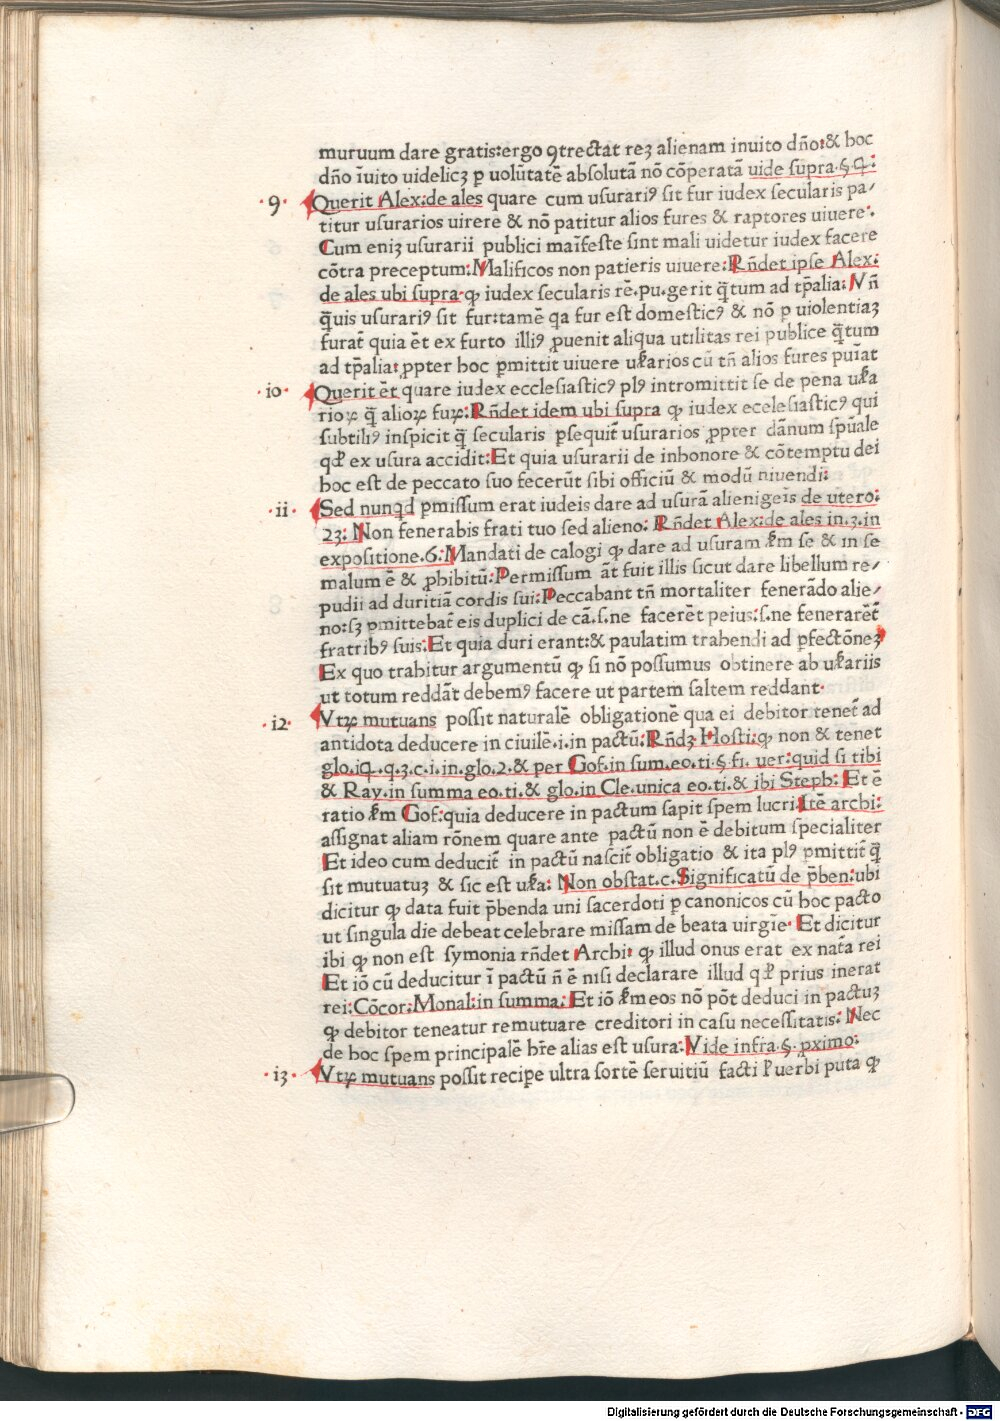 muruum dare gratis:ergo ꝯtrectat reꝫ alienam inuito dn̄o:& hoc
dn̄o īuito uidelicꝫ p uolūtatē absolutā nō cōperatā uide supra.§.4.:
.9. Querit Alex:de ales quare cum usurariꝰ sit fur iudex secularis pa/
titur usurarios uirere & nō patitur alios fures & raptores uiuere:.
Cum eniꝫ usurarii publici maīfeste sint mali uidetur iudex facere
cōtra preceptum:Malificos non patieris uiuere:Rn̄det ipse Alex:
de ales ubi supra.ꝙ iudex secularis rē.pu.gerit q̄tum ad tp̄alia:Vn̄
q̄uis usurariꝰ sit fur:tamē qa fur est domesticꝰ & nō p uiolentiaꝫ
furat̄ quia ēt ex furto illiꝰ ꝓuenit aliqua utilitas rei publice q̄tum
ad tp̄alia:ꝓpter hoc pmittit uiuere uẜarios cū tn̄ alios fures puīat
.io. Querit ēt quare iudex ecclesiasticꝰ plꝰ intromittit se de pena uẜa
rioꝝ q̄ alioꝝ fuꝝ:Rn̄det idem ubi supra ꝙ iudex ecelesiasticꝰ qui
subtiliꝰ inspicit q̄ secularis psequit̄ usurarios ꝓpter dānum spūale
qđ ex usura accidit:Et quia usurarii de inhonore & cōtemptu dei
hoc est de peccato suo fecerūt sibi officiū & modū niuendi:
.ii. Sed nunqd pmissum erat iudeis dare ad usurā alienigeis de utero:
23: Non fenerabis frati tuo sed alieno: Rn̄det Alex:de ales in.3.in
expositione.6:Mandati de calogi ꝙ dare ad usuram ẜm se & in se
malum ē & ꝓhibitū:Permissum āt fuit illis sicut dare libellum re/
pudii ad duritiā cordis sui:Peccabant tn̄ mortaliter fenerādo alie/
no:sꝫ pmittebat̄ eis duplici de cā.s.ne facerēt peius:s.ne fenerarēt̄
fratribꝰ suis:Et quia duri erant:& paulatim trahendi ad pfectōneꝫ
Ex quo trahitur argumentū ꝙ si nō possumus obtinere ab uẜariis
ut totum reddāt debemꝰ facere ut partem saltem reddant.
.i2. Vtꝝ mutuans possit naturalē obligationē qua ei debitor tenet̄ ad
antidota deducere in ciuilē.i.in pactū:Rn̄dꝫ Hosti:ꝙ non & tenet
glo.i4.q.3.c.i.in.glo.2.& per Gof.in sum.eo.ti.§.fi. uer:quid si tibi
& Ray.in summa eo.ti.& glo.in Cle.unica eo.ti.& ibi Steph: Et ē
ratio ẜm Gof:quia deducere in pactum sapit spem lucri:Itē archi:
assignat aliam rōnem quare ante pactū non ē debitum specialiter
Et ideo cum deducit̄ in pactū nascit̄ obligatio & ita plꝰ pmittit̄ q̄
sit mutuatuꝫ & sic est uẜa: Non obstat.c.Significatū de p̄ben:ubi
dicitur ꝙ data fuit p̄benda uni sacerdoti p canonicos cū hoc pacto
ut singula die debeat celebrare missam de beata uirgīe. Et dicitur
ibi ꝙ non est symonia rn̄det Archi: ꝙ illud onus erat ex natā rei
Et iō cū deducitur ī pactū n̄ ē nisi declarare illud qđ prius inerat
rei:Cōcor:Monal:in summa:Et iō ẜm eos nō pōt deduci in pactuꝫ
ꝙ debitor teneatur remutuare creditori in casu necessitatis: Nec
de hoc spem principalē hr̄e alias est usura:Vide infra.§.ꝓximo:
.i3. Vtꝝ mutuans possit recipe ultra sortē seruitiū facti ł uerbi puta ꝙ
Digitalisierung gefördert durch die Deutsche Forschungsgemeinschaft - DFG